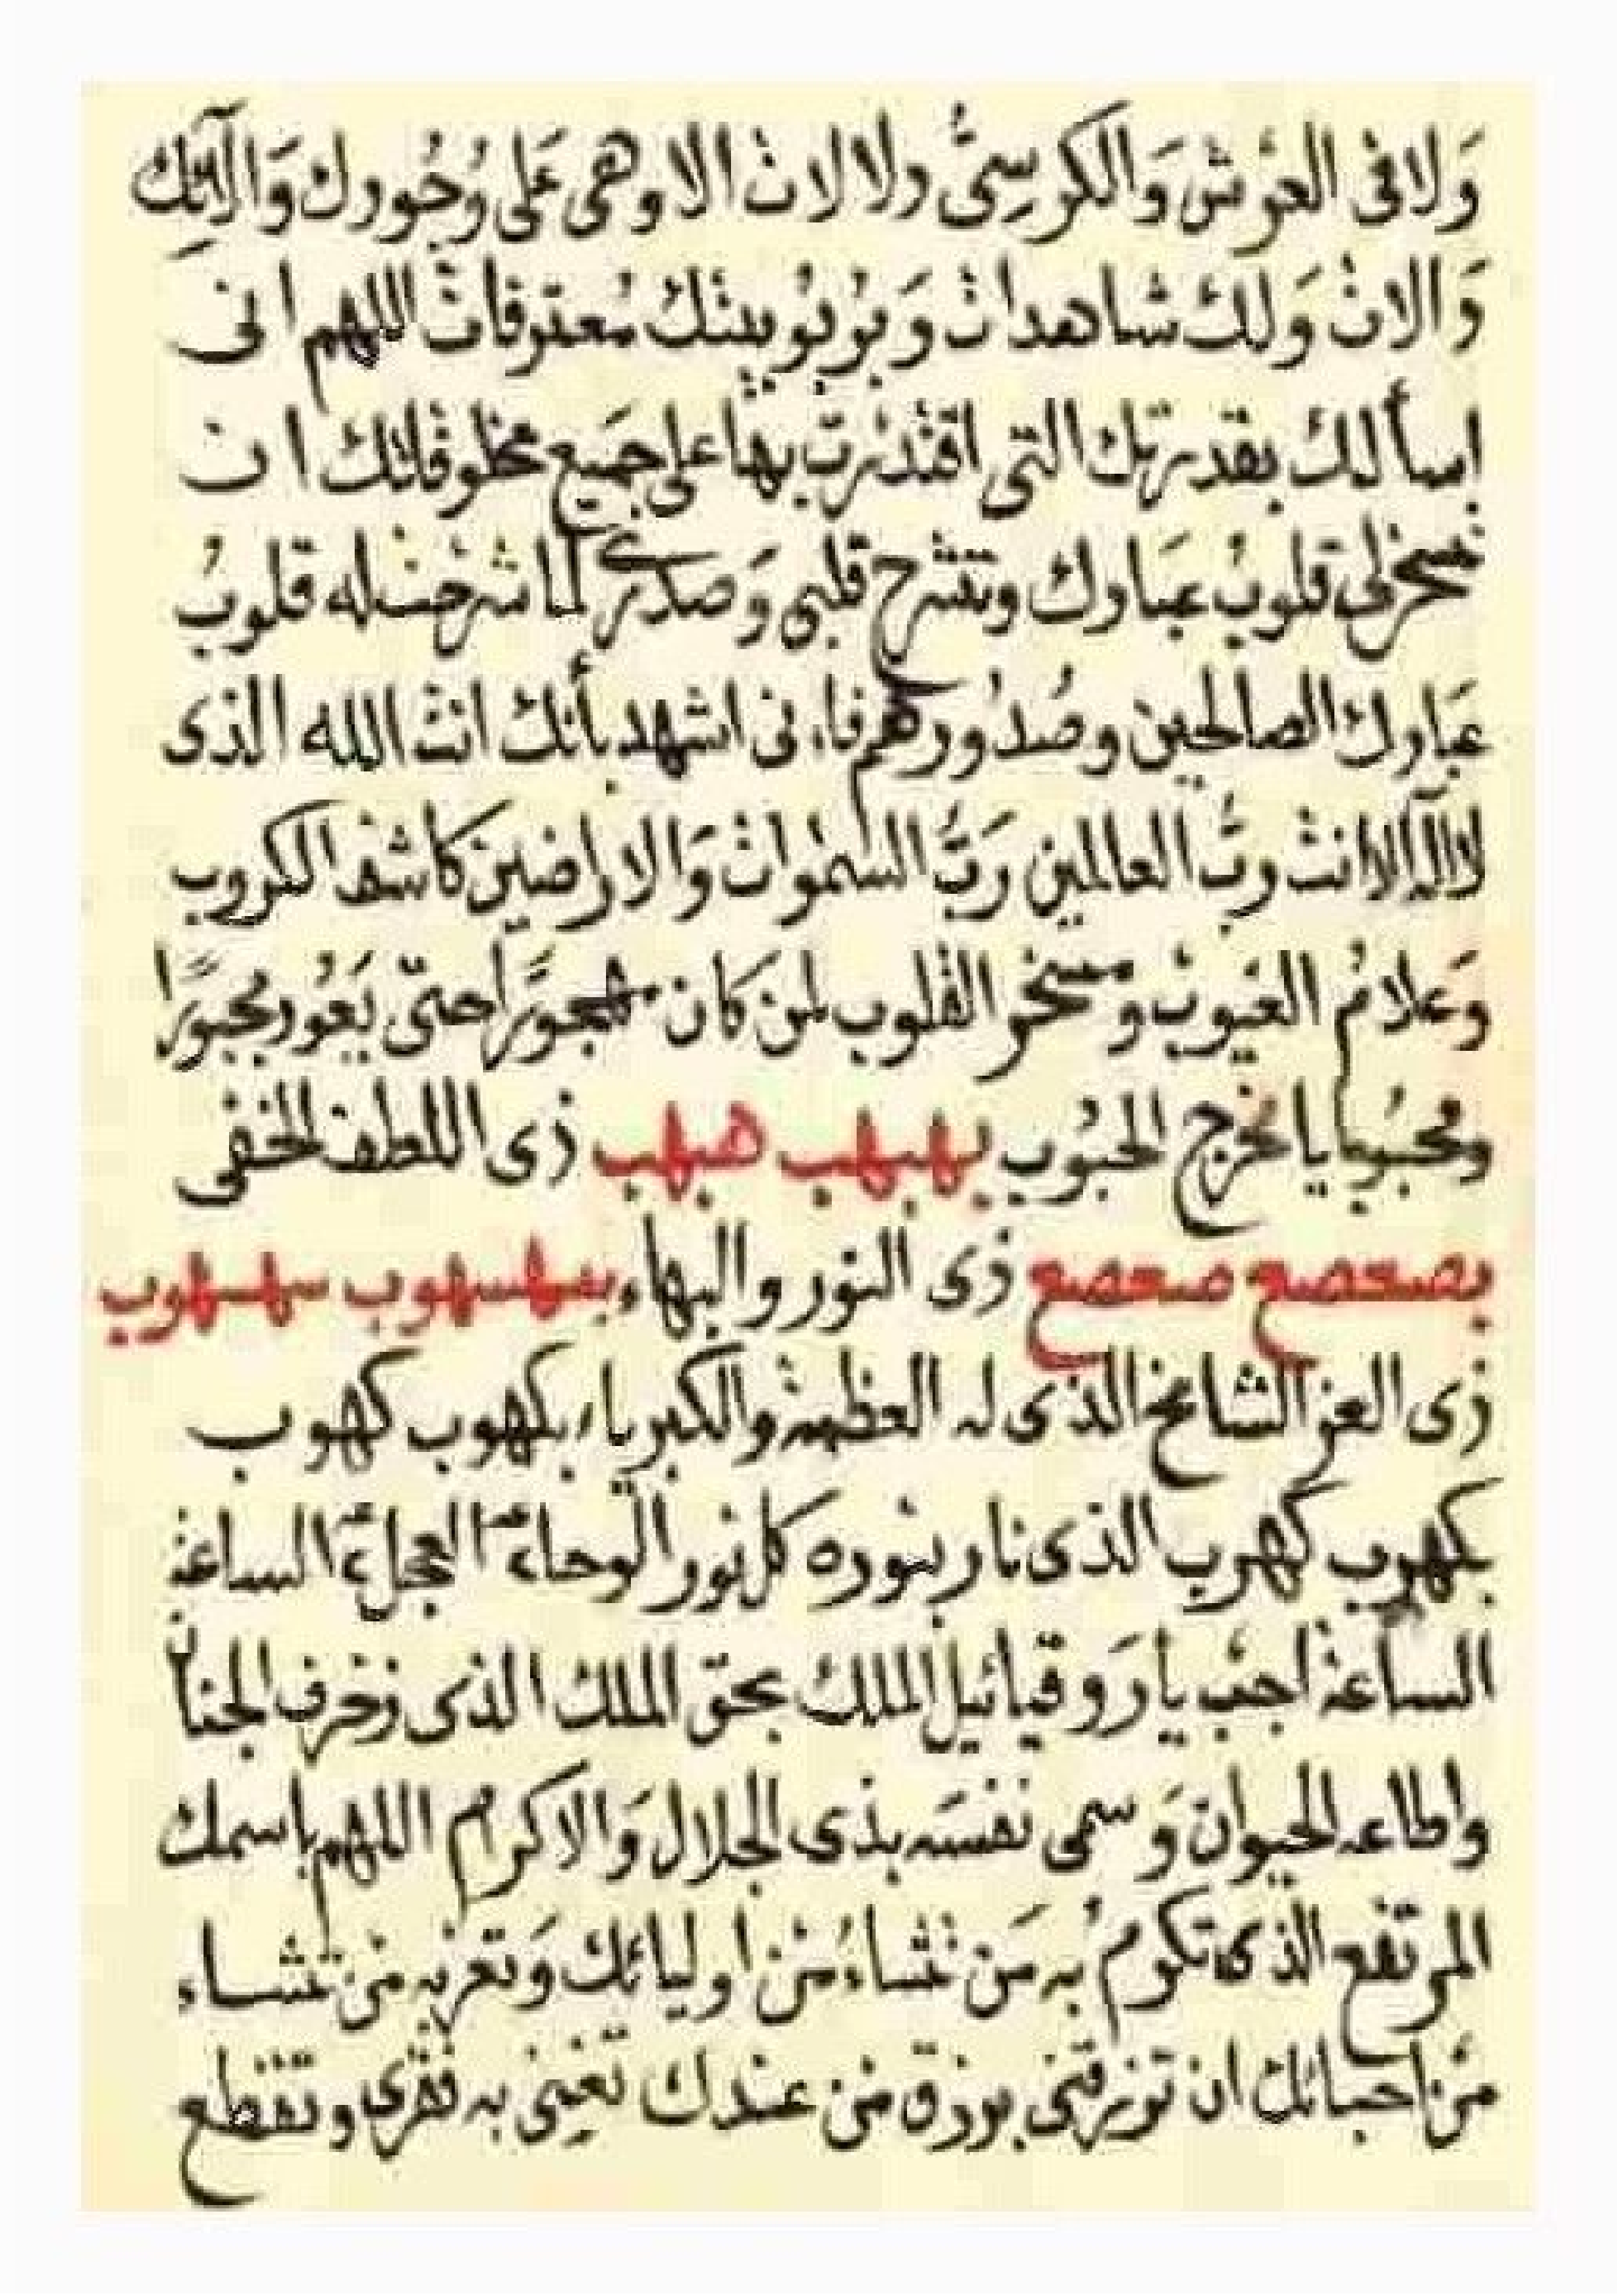 وَلا فى العَرْش وَالكرسِىُّ دلالات الاوهى عَلى وُجُودك وَالآئِك
دَالات وَلك شاهدات وَبرُبُوبيتك مُعترفات اللهم انى
اسألك بقدرتك التى اقتدرت بها على جَميع مخلوقاتك ان
تسخر لى قلوبُ عبَادك وتشرح قلبى وَصدرى لما شرحت له قلوبُ
عبَادك الصالحين وصُدُورهم فاءنى اشهد بأنك انت الله الذى
لااله الا انت ربُّ العالمين رَبُّ السموات وَالاراضين كاشف الكروب
وَعلامُ الغيوبْ ومسخر القلوب لمن كان مهجورًا حتى يَعُود مجبورًا
ومحبُوبا يا مخرج الحبُوب بهبهب هبهب ذى اللطف الخفى
بصعصع صعصع ذى النور والبهاء بسهسهوب سهسهوب
ذى العز الشامخ الذى له العظمة والكبرياء بكهوب كهوب
بكهرب كهرب الذى نار بنوره كل نور الوحا٢ العجل٢ الساعة
الساعة اجبْ يا رَوقيائيل الملك بحق الملك الذى زخرف الجنان
واطاعه الحيوان وَسمى نفسَه بذى الجلال وَالاكرام اللهم باسمك
المرتفع الذى تكرمُ به مَن تشاءُ مْن اوليائك وَتعز به منْ تشاء
منْ احبائك ان ترزقنى برزق منْ عندك تغنِنى به فقرى وتقطع